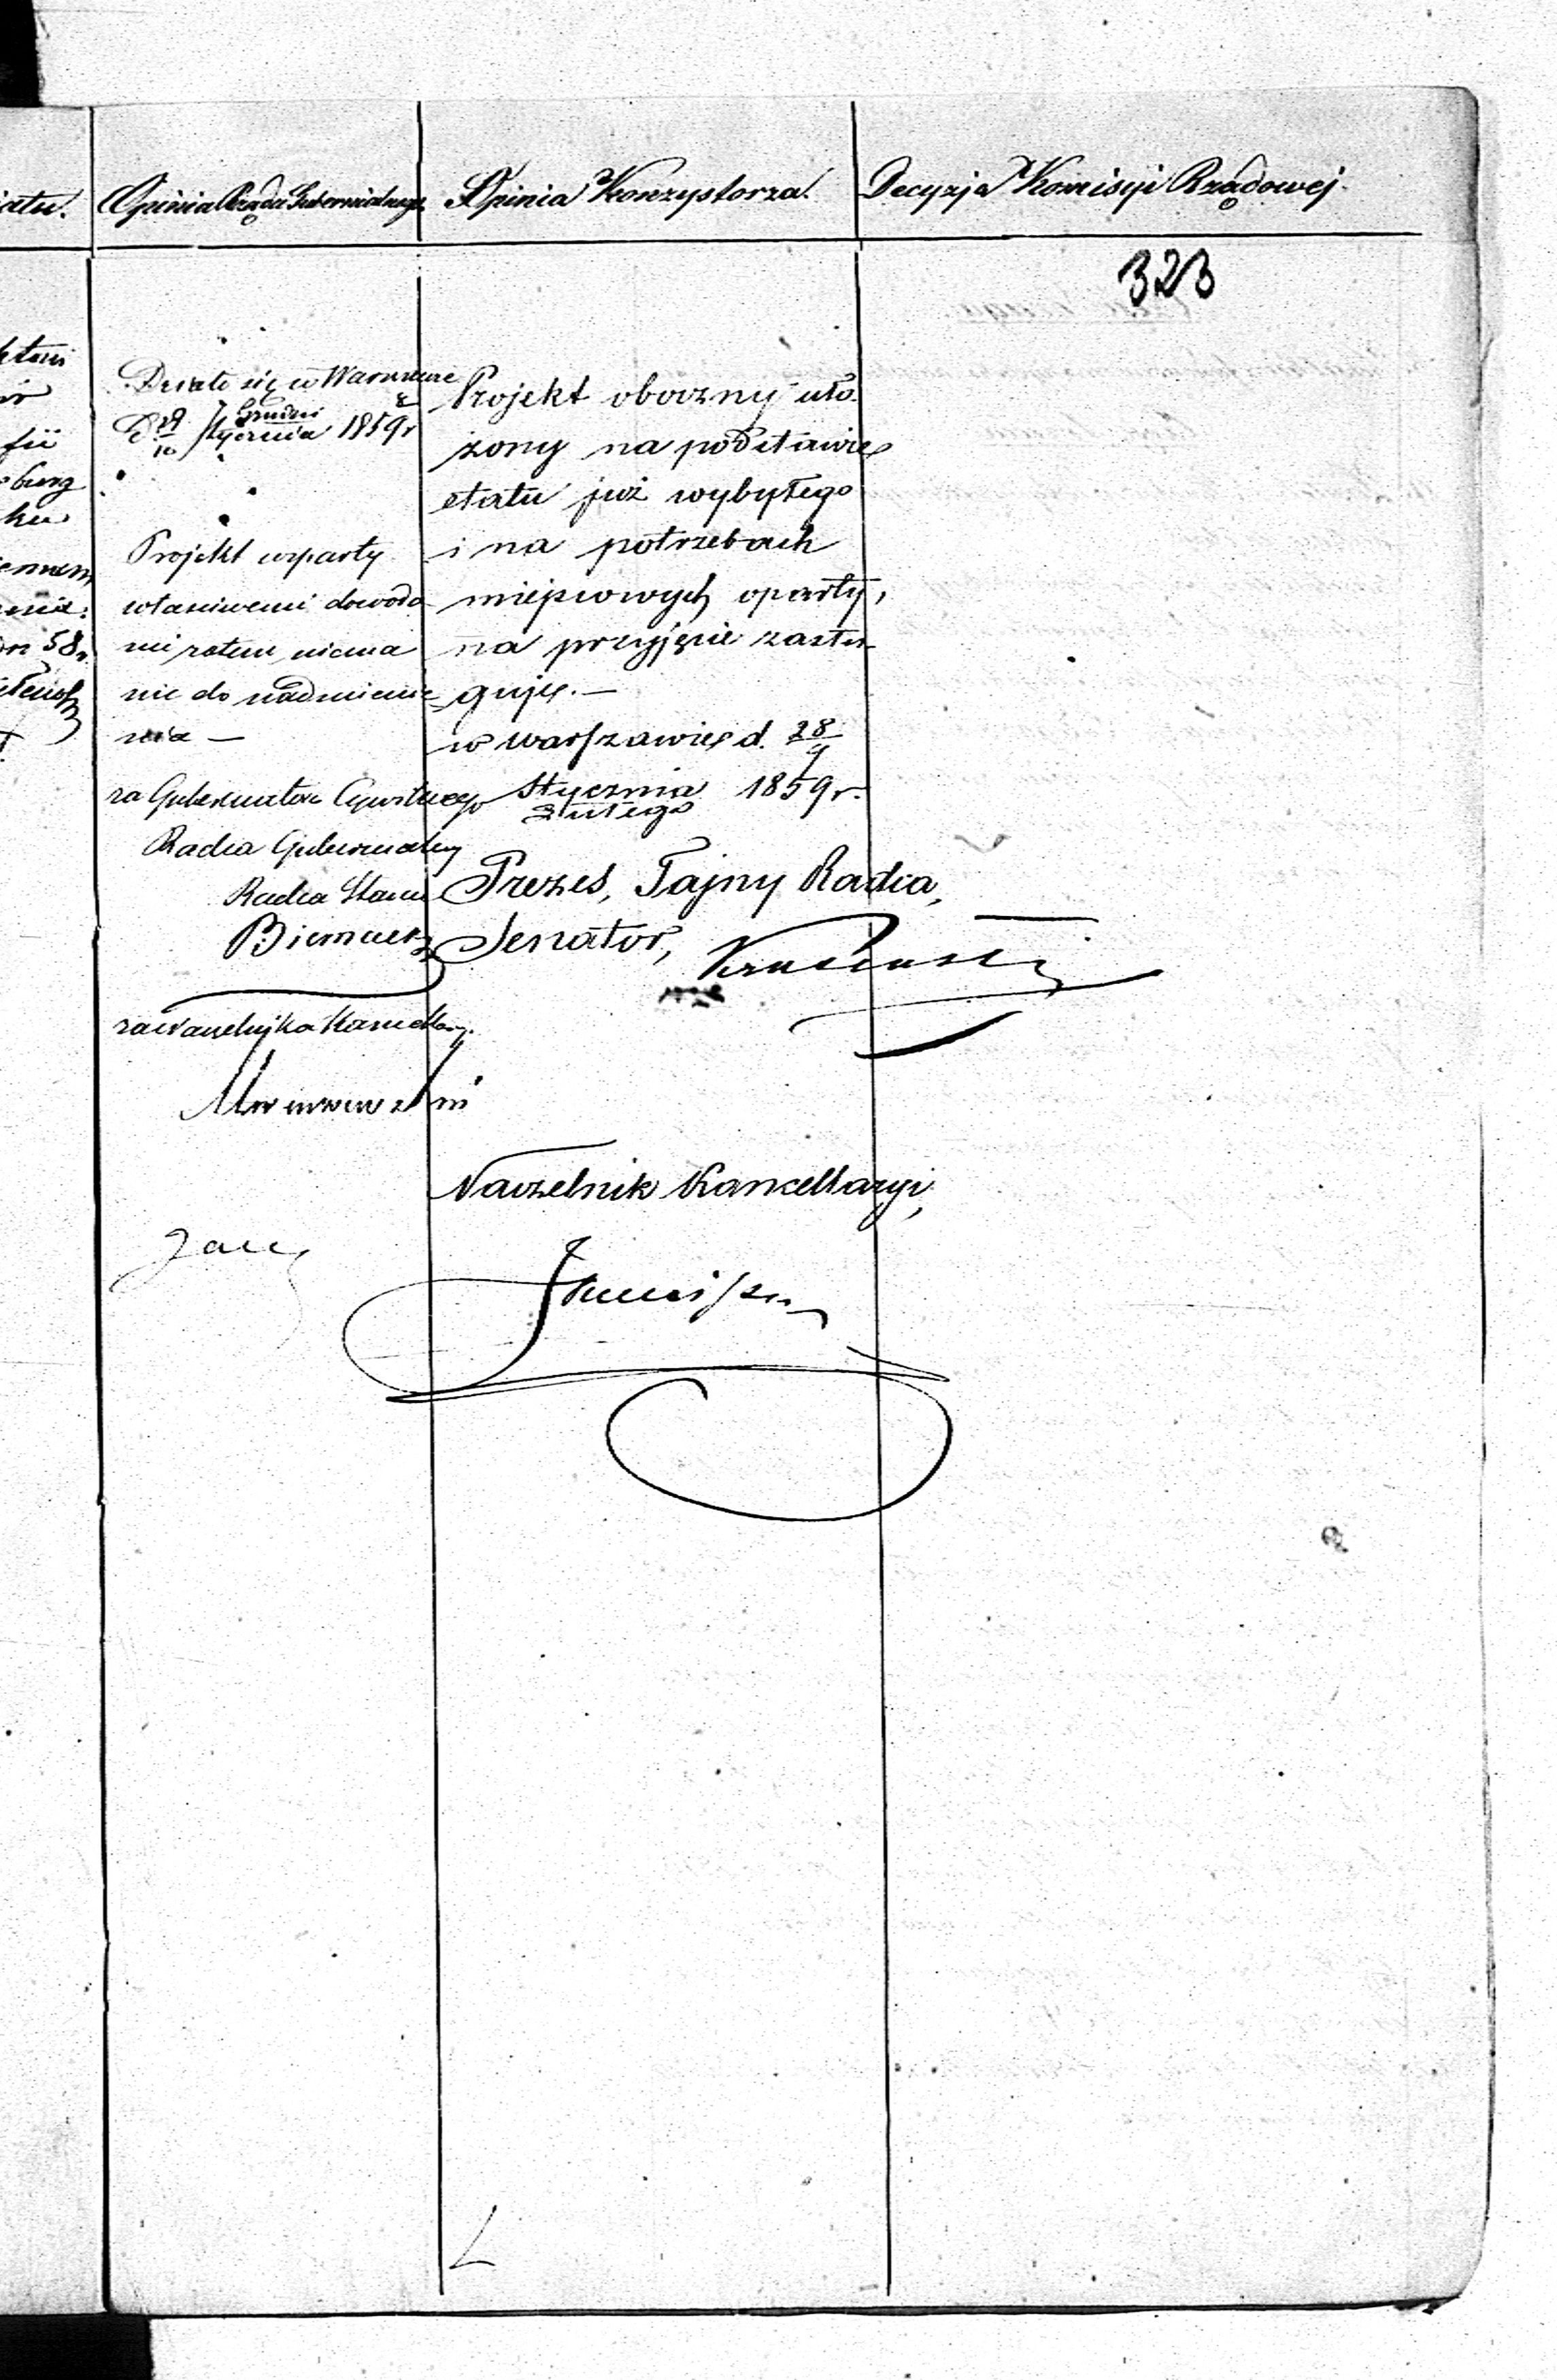 iatu.
Opinia Rządu Gubernialnego
Opinia Konsystorza.
Decyzja Komisyi Rządowej.
323
fii
burg
58
Działo się w Warszawie
d 29/10 Grudni/Stycznia 1859 r
Projekt wsparty
właściwemi dowoda
mi zatem niema
nic do nadmienie
nia —
za Gubernatora Cywilnego
Radca Gubernialny
Radca Stanu
za Naczelnika Kancellaryi.
Projekt oboczny uło
żony na podstawie
etatu już wybyłego
i na potrzebach
miejscowych oparty,
na przyjęcie zasłu
guje. —
w Warszawie d. 28/9
Stycznia/Lutego 1859 r.
Prezes, Tajny Radca,
Senator,
Naczelnik Kancellaryi,